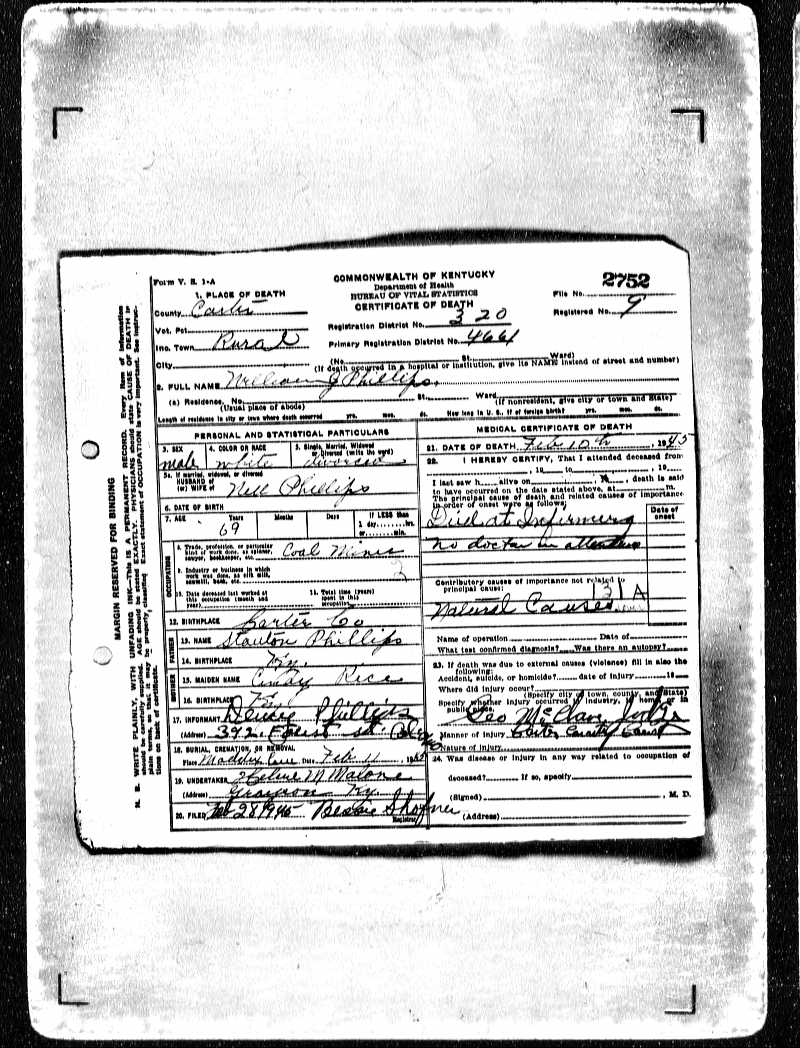 Form V. S. 1-A
COMMONWEALTH OF KENTUCKY
Department of Health
BUREAU OF VITAL STATISTICS
CERTIFICATE OF DEATH
2752
File No.
Registered No. 9
1. PLACE OF DEATH
County Carter
Vot. Pct.
Inc. Town Rural
City
Registration District No. 320
Primary Registration District No. 4661
(No. St. Ward)
(If death occurred in a hospital or institution, give its NAME instead of street and number)
2. FULL NAME William J Phillips
(a) Residence. No. St. Ward
(Usual place of abode) (If nonresident, give city or town and State)
Length of residence in city or town where death occurred yrs. mos. ds. How long in U. S. if of foreign birth? yrs. mos. ds.
PERSONAL AND STATISTICAL PARTICULARS
3. SEX male
4. COLOR OR RACE white
5. Single, Married, Widowed or Divorced (write the word) divorced
5a. If married, widowed, or divorced
HUSBAND of
(or) WIFE of Nell Phillips
6. DATE OF BIRTH
7. AGE Years 69 Months Days If LESS than 1 day, hrs. or min.
OCCUPATION
8. Trade, profession, or particular kind of work done, as spinner, sawyer, bookkeeper, etc. Coal Miner
9. Industry or business in which work was done, as silk mill, sawmill, bank, etc. 2
10. Date deceased last worked at this occupation (month and year)
11. Total time (years) spent in this occupation
12. BIRTHPLACE Carter Co
FATHER
13. NAME Stanton Phillips
14. BIRTHPLACE Ky.
MOTHER
15. MAIDEN NAME Cindy Rice
16. BIRTHPLACE Ky.
17. INFORMANT Phillips
(Address) 392
18. BURIAL, CREMATION, OR REMOVAL
Place Date Feb 11
19. UNDERTAKER M Malone
(Address) Grayson Ky.
20. FILED Feb 28 1945 Bessie Shofner
Registrar
MEDICAL CERTIFICATE OF DEATH
21. DATE OF DEATH Feb 10th, 1945
22. I HEREBY CERTIFY, That I attended deceased from
, 19 to , 19
I last saw h alive on , 19 , death is said
to have occurred on the date stated above, at m.
The principal cause of death and related causes of importance
in order of onset were as follows:
Date of onset
Died at Infirmery
no doctor in attendance
Contributory causes of importance not related to
principal cause:
131A
Natural Causes
Name of operation Date of
What test confirmed diagnosis? Was there an autopsy?
23. If death was due to external causes (violence) fill in also the
following:
Accident, suicide, or homicide? date of injury 19
Where did injury occur?
(Specify city or town, county, and State)
Specify whether injury occurred in industry, in home, or in
public place.
Geo
Manner of injury Carter County
Nature of injury
24. Was disease or injury in any way related to occupation of
deceased? If so, specify
(Signed) , M. D.
(Address)
MARGIN RESERVED FOR BINDING
N. B. WRITE PLAINLY, WITH UNFADING INK—THIS IS A PERMANENT RECORD. Every item of information
should be carefully supplied. AGE should be stated EXACTLY. PHYSICIANS should state CAUSE OF DEATH in
plain terms, so that it may be properly classified. Exact statement of OCCUPATION is very important. See instructions
on back of certificate.